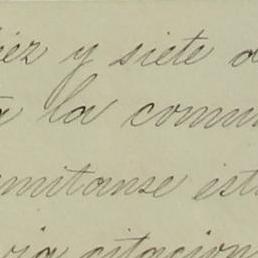 iez y siete d
a la comun
emitanse est
via citacion